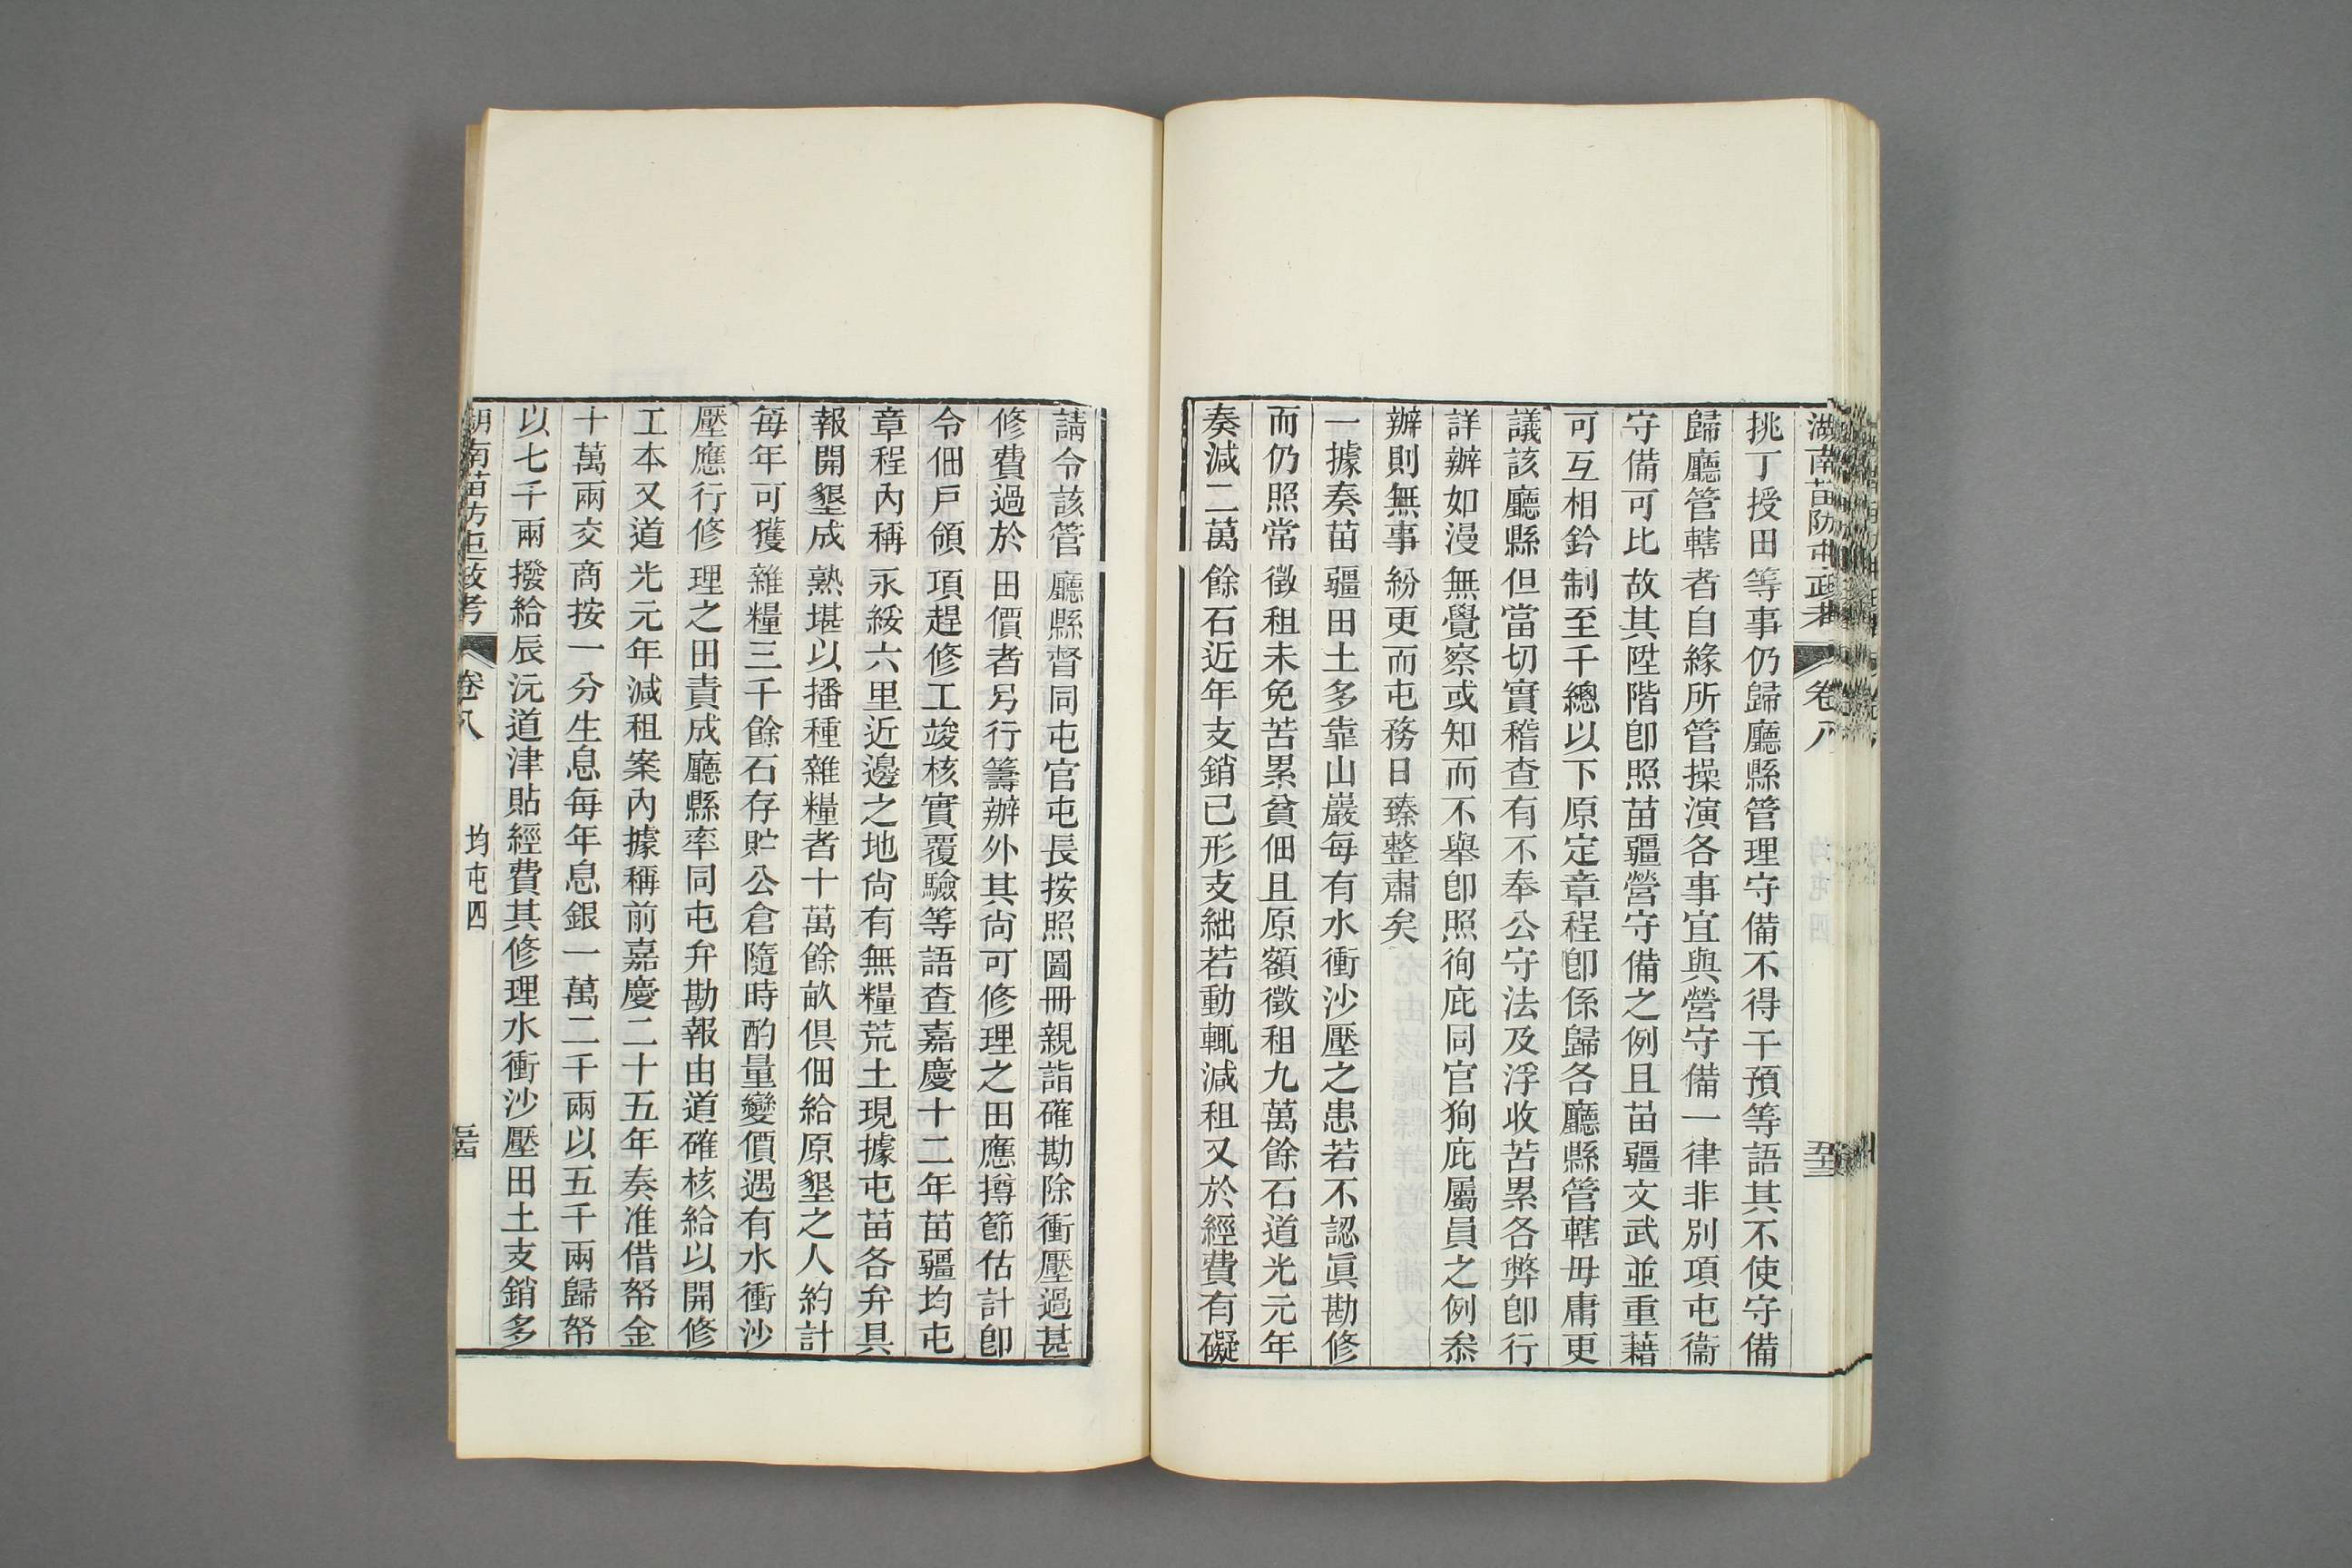 湖南苗防屯政考 卷八 五十三
挑丁授田等事仍歸廳縣管理守備不得干預等語其不使守備
歸廳管轄者自緣所管操演各事宜與營守備一律非別項屯衞
守備可比故其陞階卽照苗疆營守備之例且苗疆文武並重藉
可互相鈐制至千總以下原定章程卽係歸各廳縣管轄毋庸更
議該廳縣但當切實稽查有不奉公守法及浮收苦累各弊卽行
詳辦如漫無覺察或知而不舉卽照徇庇同官狥庇屬員之例叅
辦則無事紛更而屯務日臻整肅矣
一據奏苗疆田土多靠山巖每有水衝沙壓之患若不認眞勘修
而仍照常徵租未免苦累貧佃且原額徵租九萬餘石道光元年
奏減二萬餘石近年支銷已形支絀若動輒減租又於經費有礙
請令該管廳縣督同屯官屯長按照圖冊親詣確勘除衝壓過甚
修費過於田價者另行籌辦外其尙可修理之田應撙節估計卽
令佃戶領項趕修工竣核實覆驗等語查嘉慶十二年苗疆均屯
章程內稱永綏六里近邊之地尙有無糧荒土現據屯苗各弁具
報開墾成熟堪以播種雜糧者十萬餘畝俱佃給原墾之人約計
每年可獲雜糧三千餘石存貯公倉隨時酌量變價遇有水衝沙
壓應行修理之田責成廳縣率同屯弁勘報由道確核給以開修
工本又道光元年減租案內據稱前嘉慶二十五年奏准借帑金
十萬兩交商按一分生息每年息銀一萬二千兩以五千兩歸帑
以七千兩撥給辰沅道津貼經費其修理水衝沙壓田土支銷多
湖南苗防屯政考 卷八 均屯四 五十四